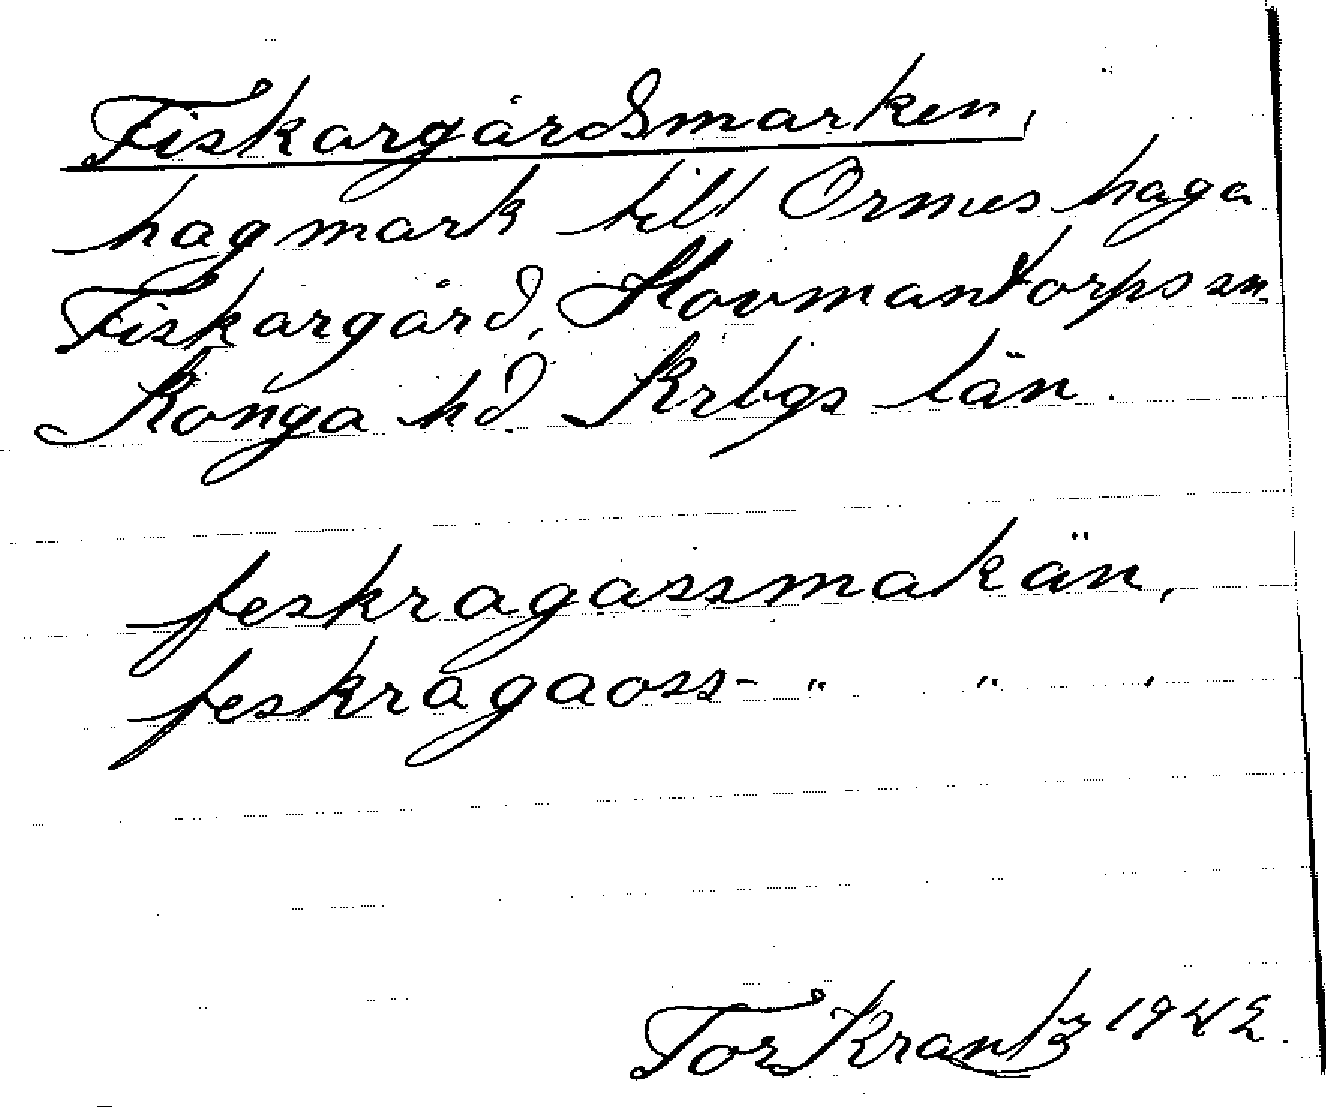 Fiskargårdsmarken,
hagmark till Ormeshaga
Fiskargård, Hovmantorps sn.
Konga hd. Krbgs län.
feskragassmakän,
feskragaoss- " " .
Tor Krantz 1942.